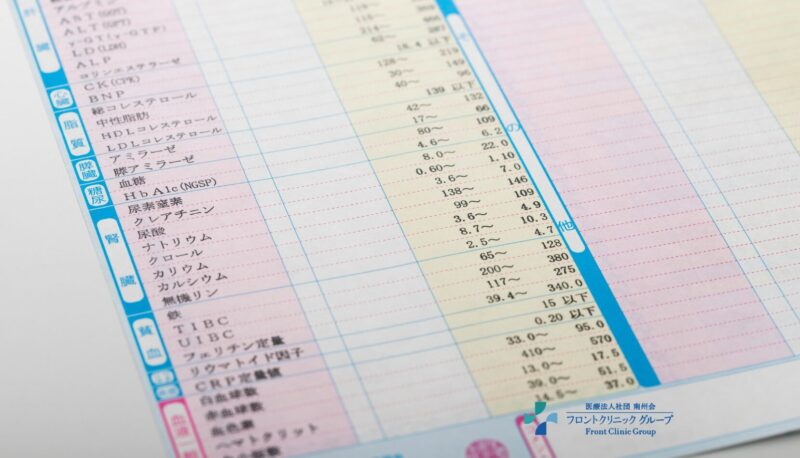 肝臓
アルブミン
AST(GOT)
ALT(GPT)
γ-GT(γ-GTP)
LD(LDH)
ALP
コリンエステラーゼ
CK(CPK) 62～ 287
心臓
BNP 18.4 以下
脂質
総コレステロール 128～ 219
中性脂肪 30～ 149
HDLコレステロール 40～ 96
LDLコレステロール 139 以下
膵臓
アミラーゼ 42～ 132
膵アミラーゼ 17～ 66
糖尿
血糖 80～ 109
HbA1c(NGSP) 4.6～ 6.2
腎臓
尿素窒素 8.0～ 22.0
クレアチニン 0.60～ 1.10
尿酸 3.6～ 7.0
ナトリウム 138～ 146
クロール 99～ 109
カリウム 3.6～ 4.9
カルシウム 8.7～ 10.3
無機リン 2.5～ 4.7
貧血
鉄 65～ 128
TIBC 200～ 380
UIBC 117～ 275
フェリチン定量 39.4～ 340.0
リウマトイド因子 15 以下
CRP定量値 0.20 以下
血液一般
白血球数 33.0～ 95.0
赤血球数 410～ 570
血色素 13.0～ 17.5
ヘマトクリット 39.0～ 51.5
14.5～ 37.0
その他
医療法人社団 南州会
フロントクリニック グループ
Front Clinic Group